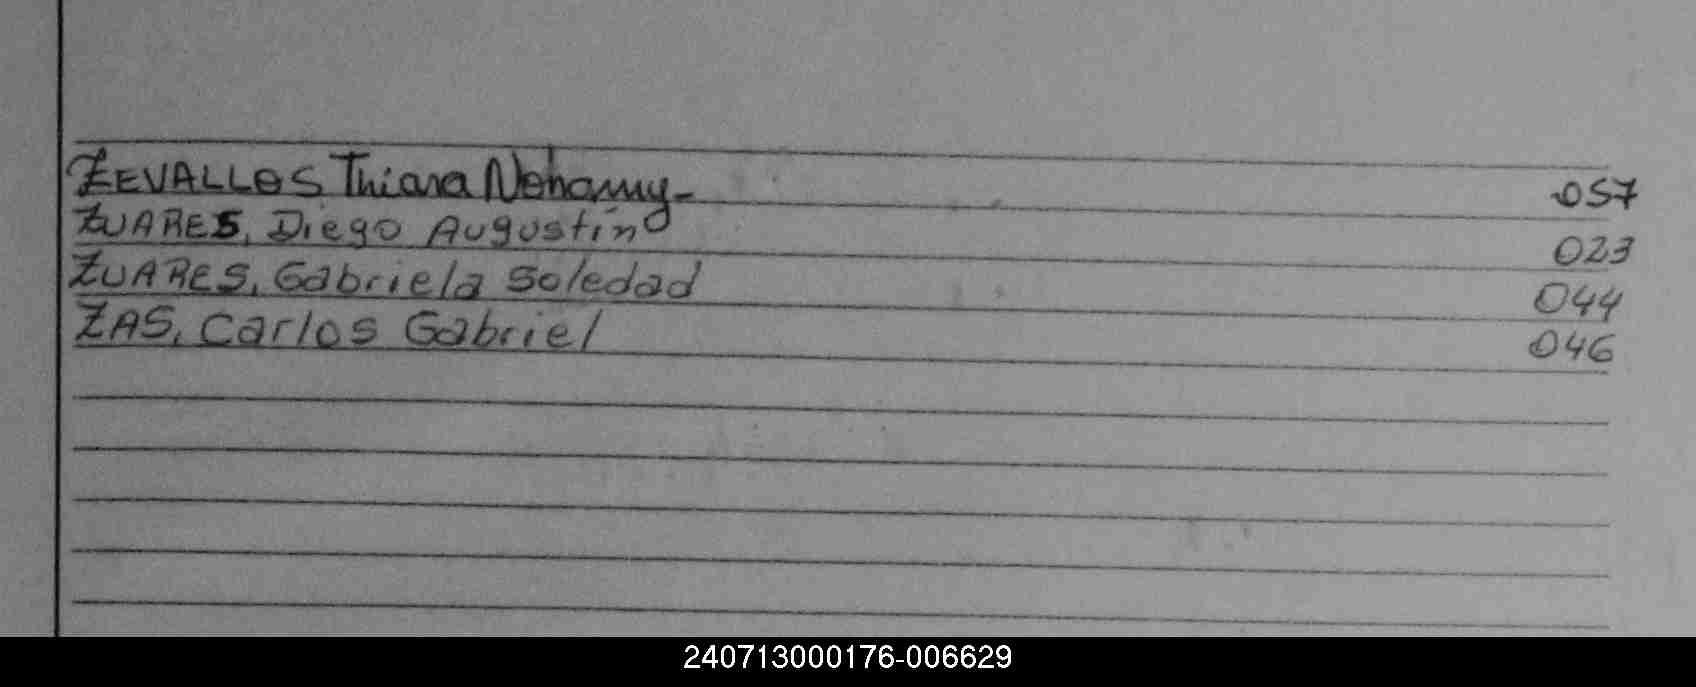 ZEVALLOS Thiara Nohamy- 057
ZUARES, Diego Augustino 023
ZUARES, Gabriela Soledad 044
ZAS, Carlos Gabriel 046
240713000176-006629